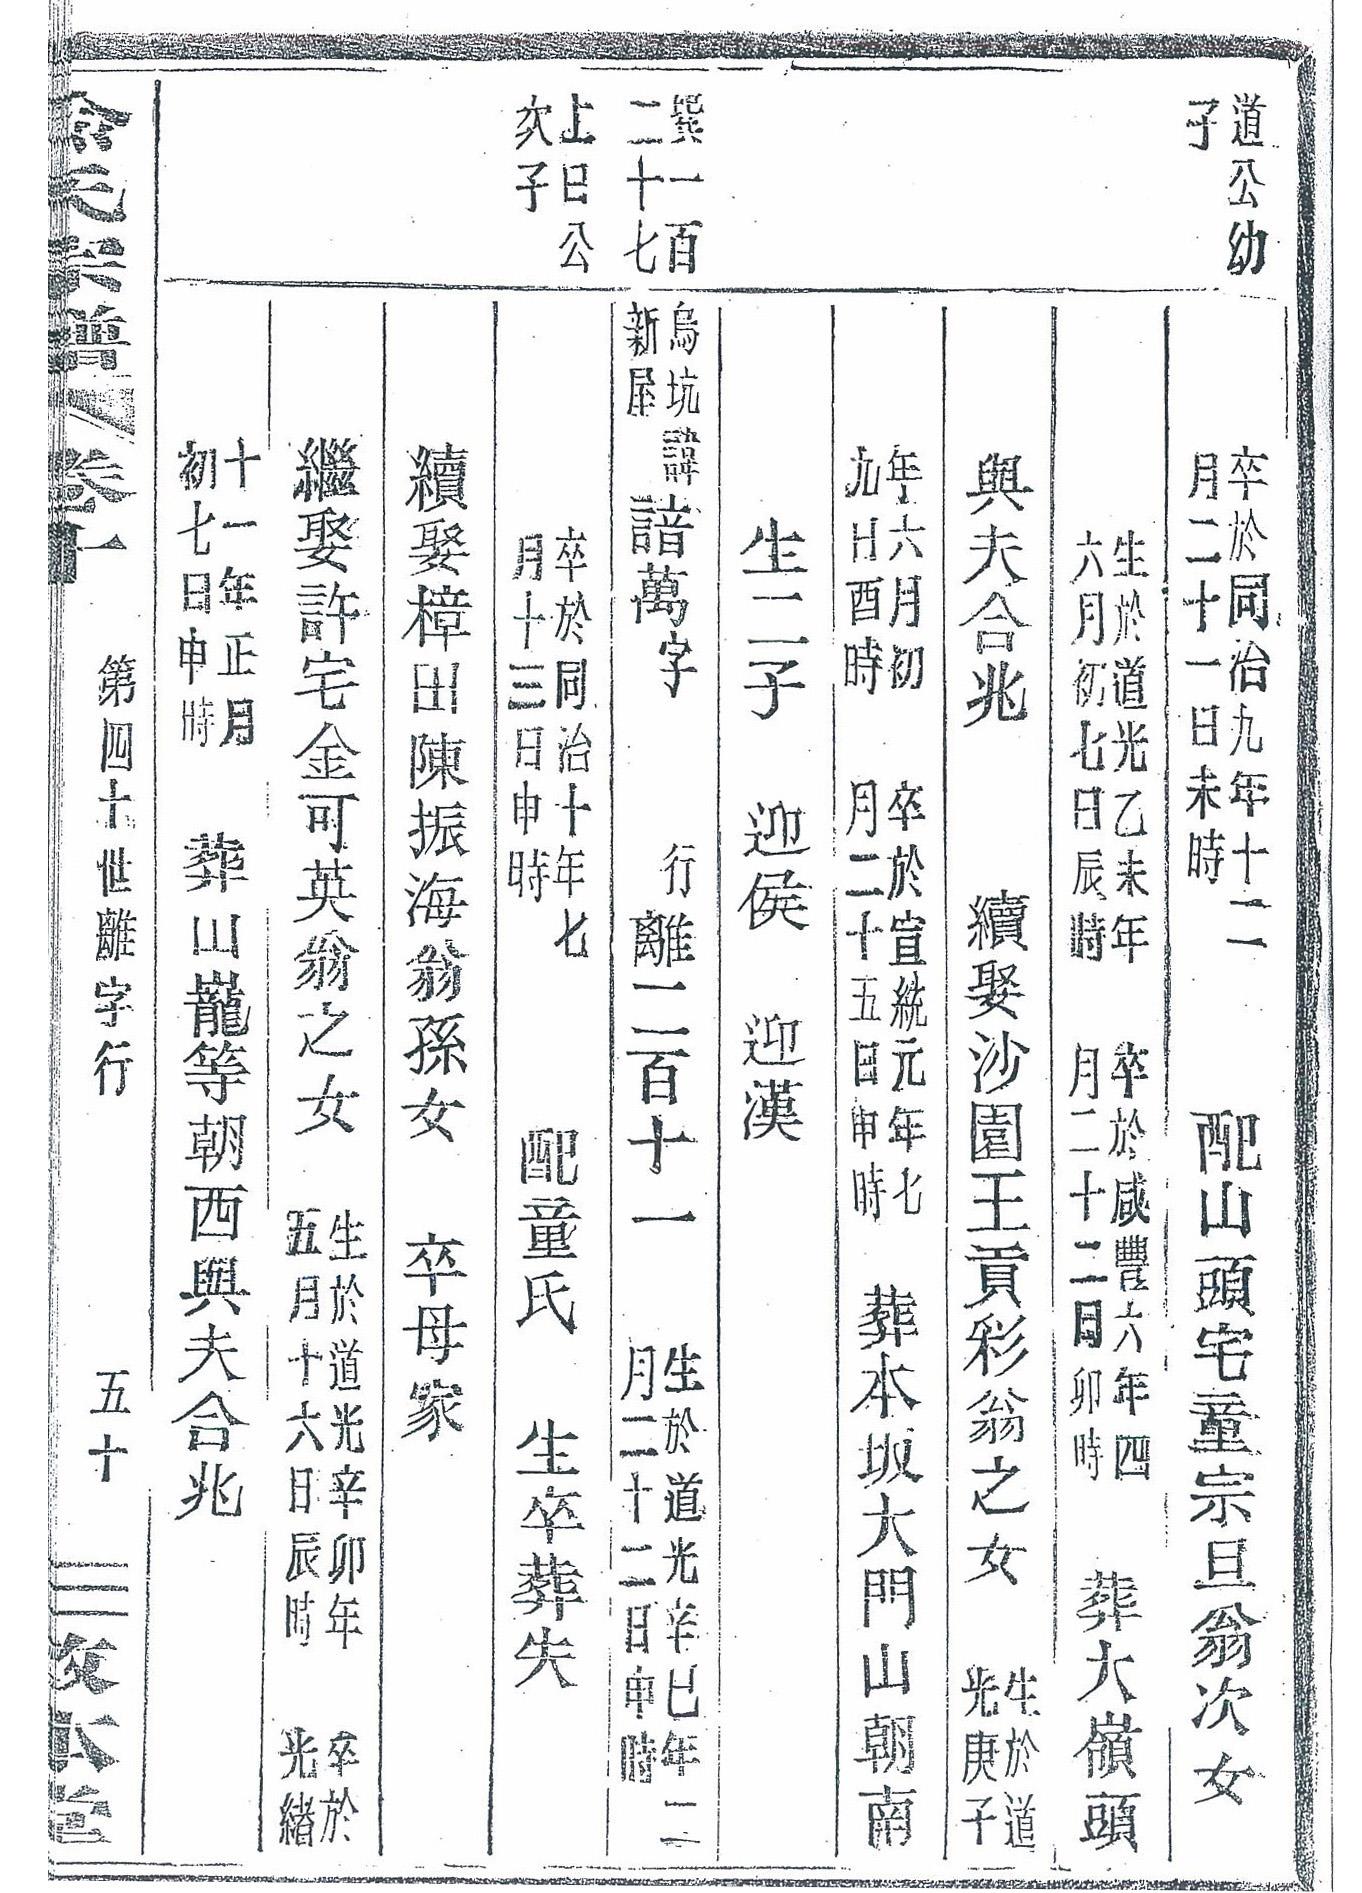 道公幼
子
卒於同治九年十二
月二十一日未時
配山頭宅童宗旦翁次女
生於道光乙未年
六月初七日辰時
卒於咸豐六年四
月二十二日卯時
葬大嶺頭
與夫合兆
續娶沙園王貢彩翁之女
生於道
光庚子
年六月初
九日酉時
卒於宣統元年七
月二十五日申時
葬本坂大門山朝南
生二子 迎侯 迎漢
巽一百
二十七
烏坑
新屋
諱諳萬字
行離二百十一
生於道光辛巳年二
月二十二日申時
上日公
次子
卒於同治十年七
月十三日申時
配童氏 生卒葬失
續娶樟出陳振海翁孫女 卒母家
繼娶許宅金可英翁之女
生於道光辛卯年
五月十六日辰時
卒於
光緒
十一年正月
初七日申時
葬山巃等朝西與夫合兆
氏宗譜 卷十 第四十世離字行 五十 敘本堂